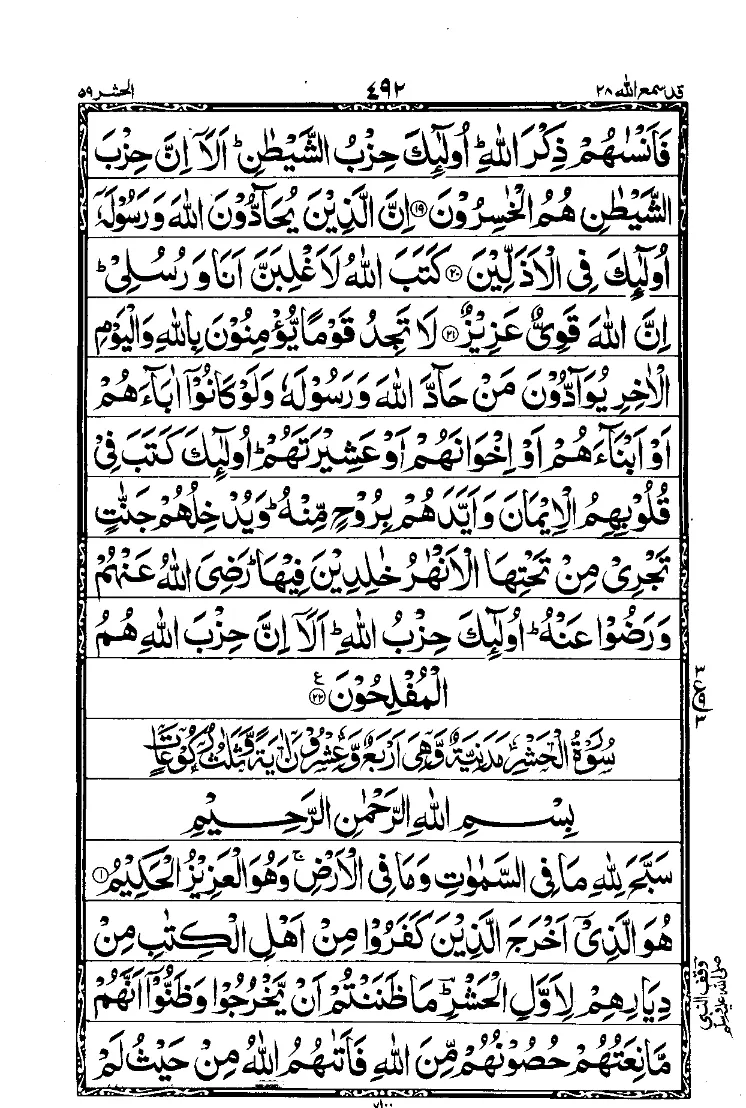 قد سمع الله ٢٨ ٤٩٢ الحشر ٥٩
فَاَنْسٰىهُمْ ذِكْرَ اللّٰهِ ؕ اُولٰٓئِكَ حِزْبُ الشَّيْطٰنِ ؕ اَلَاۤ اِنَّ حِزْبَ
الشَّيْطٰنِ هُمُ الْخٰسِرُوْنَ ۝١٩ اِنَّ الَّذِيْنَ يُحَآدُّوْنَ اللّٰهَ وَرَسُوْلَهٗۤ
اُولٰٓئِكَ فِى الْاَذَلِّيْنَ ۝٢٠ كَتَبَ اللّٰهُ لَاَغْلِبَنَّ اَنَا وَرُسُلِىْ ؕ
اِنَّ اللّٰهَ قَوِىٌّ عَزِيْزٌ ۝٢١ لَا تَجِدُ قَوْمًا يُّؤْمِنُوْنَ بِاللّٰهِ وَالْيَوْمِ
الْاٰخِرِ يُوَآدُّوْنَ مَنْ حَآدَّ اللّٰهَ وَرَسُوْلَهٗ وَلَوْ كَانُوْۤا اٰبَآءَهُمْ
اَوْ اَبْنَآءَهُمْ اَوْ اِخْوَانَهُمْ اَوْ عَشِيْرَتَهُمْ ؕ اُولٰٓئِكَ كَتَبَ فِىْ
قُلُوْبِهِمُ الْاِيْمَانَ وَاَيَّدَهُمْ بِرُوْحٍ مِّنْهُ ؕ وَيُدْخِلُهُمْ جَنّٰتٍ
تَجْرِىْ مِنْ تَحْتِهَا الْاَنْهٰرُ خٰلِدِيْنَ فِيْهَا ؕ رَضِىَ اللّٰهُ عَنْهُمْ
وَرَضُوْا عَنْهُ ؕ اُولٰٓئِكَ حِزْبُ اللّٰهِ ؕ اَلَاۤ اِنَّ حِزْبَ اللّٰهِ هُمُ
الْمُفْلِحُوْنَ ۝٢٢ ع
سُوْرَةُ الْحَشْرِ مَدَنِيَّةٌ وَّهِىَ اَرْبَعٌ وَّعِشْرُوْنَ اٰيَةً وَّثَلٰثُ رُكُوْعَاتٍ
بِسْمِ اللّٰهِ الرَّحْمٰنِ الرَّحِيْمِ
سَبَّحَ لِلّٰهِ مَا فِى السَّمٰوٰتِ وَمَا فِى الْاَرْضِ ۚ وَهُوَ الْعَزِيْزُ الْحَكِيْمُ ۝١
هُوَ الَّذِىْۤ اَخْرَجَ الَّذِيْنَ كَفَرُوْا مِنْ اَهْلِ الْكِتٰبِ مِنْ
دِيَارِهِمْ لِاَوَّلِ الْحَشْرِ ؔ مَا ظَنَنْتُمْ اَنْ يَّخْرُجُوْا وَظَنُّوْۤا اَنَّهُمْ
مَّانِعَتُهُمْ حُصُوْنُهُمْ مِّنَ اللّٰهِ فَاَتٰىهُمُ اللّٰهُ مِنْ حَيْثُ لَمْ
وقف النبى
صلى الله عليه وسلم